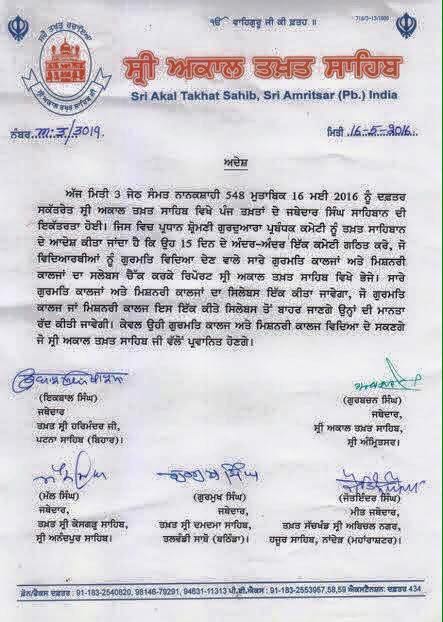 ੴ ਵਾਹਿਗੁਰੂ ਜੀ ਕੀ ਫ਼ਤਹ ॥
ਸ੍ਰੀ ਅਕਾਲ ਤਖ਼ਤ ਸਾਹਿਬ
Sri Akal Takhat Sahib, Sri Amritsar (Pb.) India
ਨੰਬਰ ਅ:ਤ/3019 ਮਿਤੀ 16-5-2016
ਆਦੇਸ਼
ਅੱਜ ਮਿਤੀ 3 ਜੇਠ ਸੰਮਤ ਨਾਨਕਸ਼ਾਹੀ 548 ਮੁਤਾਬਿਕ 16 ਮਈ 2016 ਨੂੰ ਦਫ਼ਤਰ
ਸਕੱਤਰੇਤ ਸ੍ਰੀ ਅਕਾਲ ਤਖ਼ਤ ਸਾਹਿਬ ਵਿਖੇ ਪੰਜ ਤਖ਼ਤਾਂ ਦੇ ਜਥੇਦਾਰ ਸਿੰਘ ਸਾਹਿਬਾਨ ਦੀ
ਇਕੱਤਰਤਾ ਹੋਈ। ਜਿਸ ਵਿਚ ਪ੍ਰਧਾਨ ਸ਼੍ਰੋਮਣੀ ਗੁਰਦੁਆਰਾ ਪ੍ਰਬੰਧਕ ਕਮੇਟੀ ਨੂੰ ਤਖ਼ਤ ਸਾਹਿਬਾਨ
ਦੇ ਆਦੇਸ਼ ਕੀਤਾ ਜਾਂਦਾ ਹੈ ਕਿ ਉਹ 15 ਦਿਨ ਦੇ ਅੰਦਰ-ਅੰਦਰ ਇੱਕ ਕਮੇਟੀ ਗਠਿਤ ਕਰੇ, ਜੋ
ਵਿਦਿਆਰਥੀਆਂ ਨੂੰ ਗੁਰਮਤਿ ਵਿਦਿਆ ਦੇਣ ਵਾਲੇ ਸਾਰੇ ਗੁਰਮਤਿ ਕਾਲਜਾਂ ਅਤੇ ਮਿਸ਼ਨਰੀ
ਕਾਲਜਾਂ ਦਾ ਸਲੇਬਸ ਚੈੱਕ ਕਰਕੇ ਰਿਪੋਰਟ ਸ੍ਰੀ ਅਕਾਲ ਤਖ਼ਤ ਸਾਹਿਬ ਵਿਖੇ ਭੇਜੇ। ਸਾਰੇ
ਗੁਰਮਤਿ ਕਾਲਜਾਂ ਅਤੇ ਮਿਸ਼ਨਰੀ ਕਾਲਜਾਂ ਦਾ ਸਿਲੇਬਸ ਇੱਕ ਕੀਤਾ ਜਾਵੇਗਾ, ਜੋ ਗੁਰਮਤਿ
ਕਾਲਜ ਜਾਂ ਮਿਸ਼ਨਰੀ ਕਾਲਜ ਇਸ ਇੱਕ ਕੀਤੇ ਸਿਲੇਬਸ ਤੋਂ ਬਾਹਰ ਜਾਣਗੇ ਉਨ੍ਹਾਂ ਦੀ ਮਾਨਤਾ
ਰੱਦ ਕੀਤੀ ਜਾਵੇਗੀ। ਕੇਵਲ ਉਹੀ ਗੁਰਮਤਿ ਕਾਲਜ ਅਤੇ ਮਿਸ਼ਨਰੀ ਕਾਲਜ ਵਿਦਿਆ ਦੇ ਸਕਣਗੇ
ਜੋ ਸ੍ਰੀ ਅਕਾਲ ਤਖ਼ਤ ਸਾਹਿਬ ਜੀ ਵੱਲੋਂ ਪ੍ਰਵਾਨਿਤ ਹੋਣਗੇ।
(ਇਕਬਾਲ ਸਿੰਘ)
ਜਥੇਦਾਰ
ਤਖ਼ਤ ਸ੍ਰੀ ਹਰਿਮੰਦਰ ਜੀ,
ਪਟਨਾ ਸਾਹਿਬ (ਬਿਹਾਰ)।
(ਗੁਰਬਚਨ ਸਿੰਘ)
ਜਥੇਦਾਰ,
ਸ੍ਰੀ ਅਕਾਲ ਤਖ਼ਤ ਸਾਹਿਬ,
ਸ੍ਰੀ ਅੰਮ੍ਰਿਤਸਰ।
(ਮੱਲ ਸਿੰਘ)
ਜਥੇਦਾਰ,
ਤਖ਼ਤ ਸ੍ਰੀ ਕੇਸਗੜ੍ਹ ਸਾਹਿਬ,
ਸ੍ਰੀ ਅਨੰਦਪੁਰ ਸਾਹਿਬ।
ਗੁਰਮੁਖ ਸਿੰਘ
(ਗੁਰਮੁਖ ਸਿੰਘ)
ਜਥੇਦਾਰ,
ਤਖ਼ਤ ਸ੍ਰੀ ਦਮਦਮਾ ਸਾਹਿਬ,
ਤਲਵੰਡੀ ਸਾਬੋ (ਬਠਿੰਡਾ)।
(ਜੋਤਇੰਦਰ ਸਿੰਘ)
ਮੀਤ ਜਥੇਦਾਰ,
ਤਖ਼ਤ ਸੱਚਖੰਡ ਸ੍ਰੀ ਅਬਿਚਲ ਨਗਰ,
ਹਜ਼ੂਰ ਸਾਹਿਬ, ਨਾਂਦੇੜ (ਮਹਾਂਰਾਸ਼ਟਰ)।
ਫ਼ੋਨ/ਫੈਕਸ ਦਫ਼ਤਰ : 91-183-2540820, 98146-79291, 94631-11313 ਪੀ.ਬੀ.ਐਕਸ : 91-183-2553957,58,59 ਐਕਸਟੈਨਸ਼ਨ: ਦਫ਼ਤਰ 434